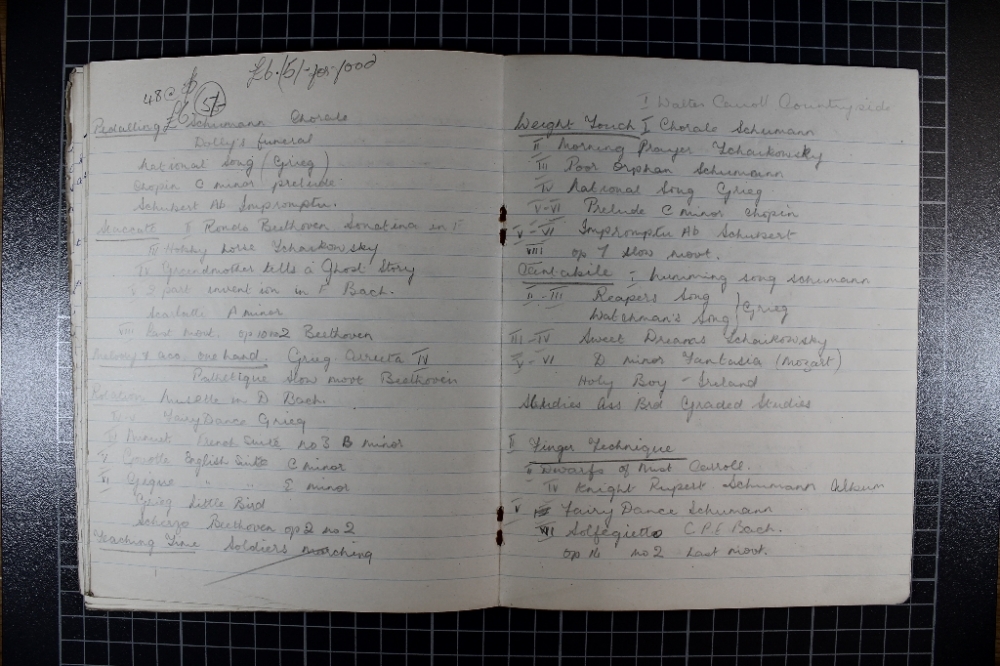 £6.15/- for 1000
48 @ 5/-
£6
Pedalling Schumann Chorale
Dolly's funeral
National Song (Grieg)
Chopin C minor prelude
Schubert Ab Impromptu.
Staccato II Rondo Beethoven Sonatina in F
III Hobby horse Tchaikowsky
IV Grandmother tells a Ghost Story
2 part invention in F Bach.
Scarlatti A minor
VIII Last movt. op 10 no 2 Beethoven
Melody & acc. one hand. Grieg Arietta IV
Pathetique Slow movt Beethoven
Rotation Musette in D Bach
Fairy Dance Grieg
Minuet French Suite no 3 B minor
V Gavotte English Suite G minor
VI Gigue " " E minor
Grieg Little Bird
Scherzo Beethoven op 2 no 2
Teaching Time Soldiers marching
I Walter Carroll Countryside
Weight Touch I Chorale Schumann
II Morning Prayer Tchaikowsky
III Poor Orphan Schumann
IV National Song Grieg
V-VI Prelude C minor Chopin
V-VI Impromptu Ab Schubert
VIII op 7 slow movt.
Cantabile I humming song Schumann
II-III Reapers Song
Watchman's Song } Grieg
III-IV Sweet Dreams Tchaikowsky
V-VI D minor Fantasia (Mozart)
Holy Boy - Ireland
Studies Ass Brd Graded Studies
II Finger Technique
II Dwarfs of Mist Carroll.
IV Knight Rupert Schumann Album
V Fairy Dance Schumann
VII Solfegietto C.P.E Bach.
op 14 no 2 Last movt.